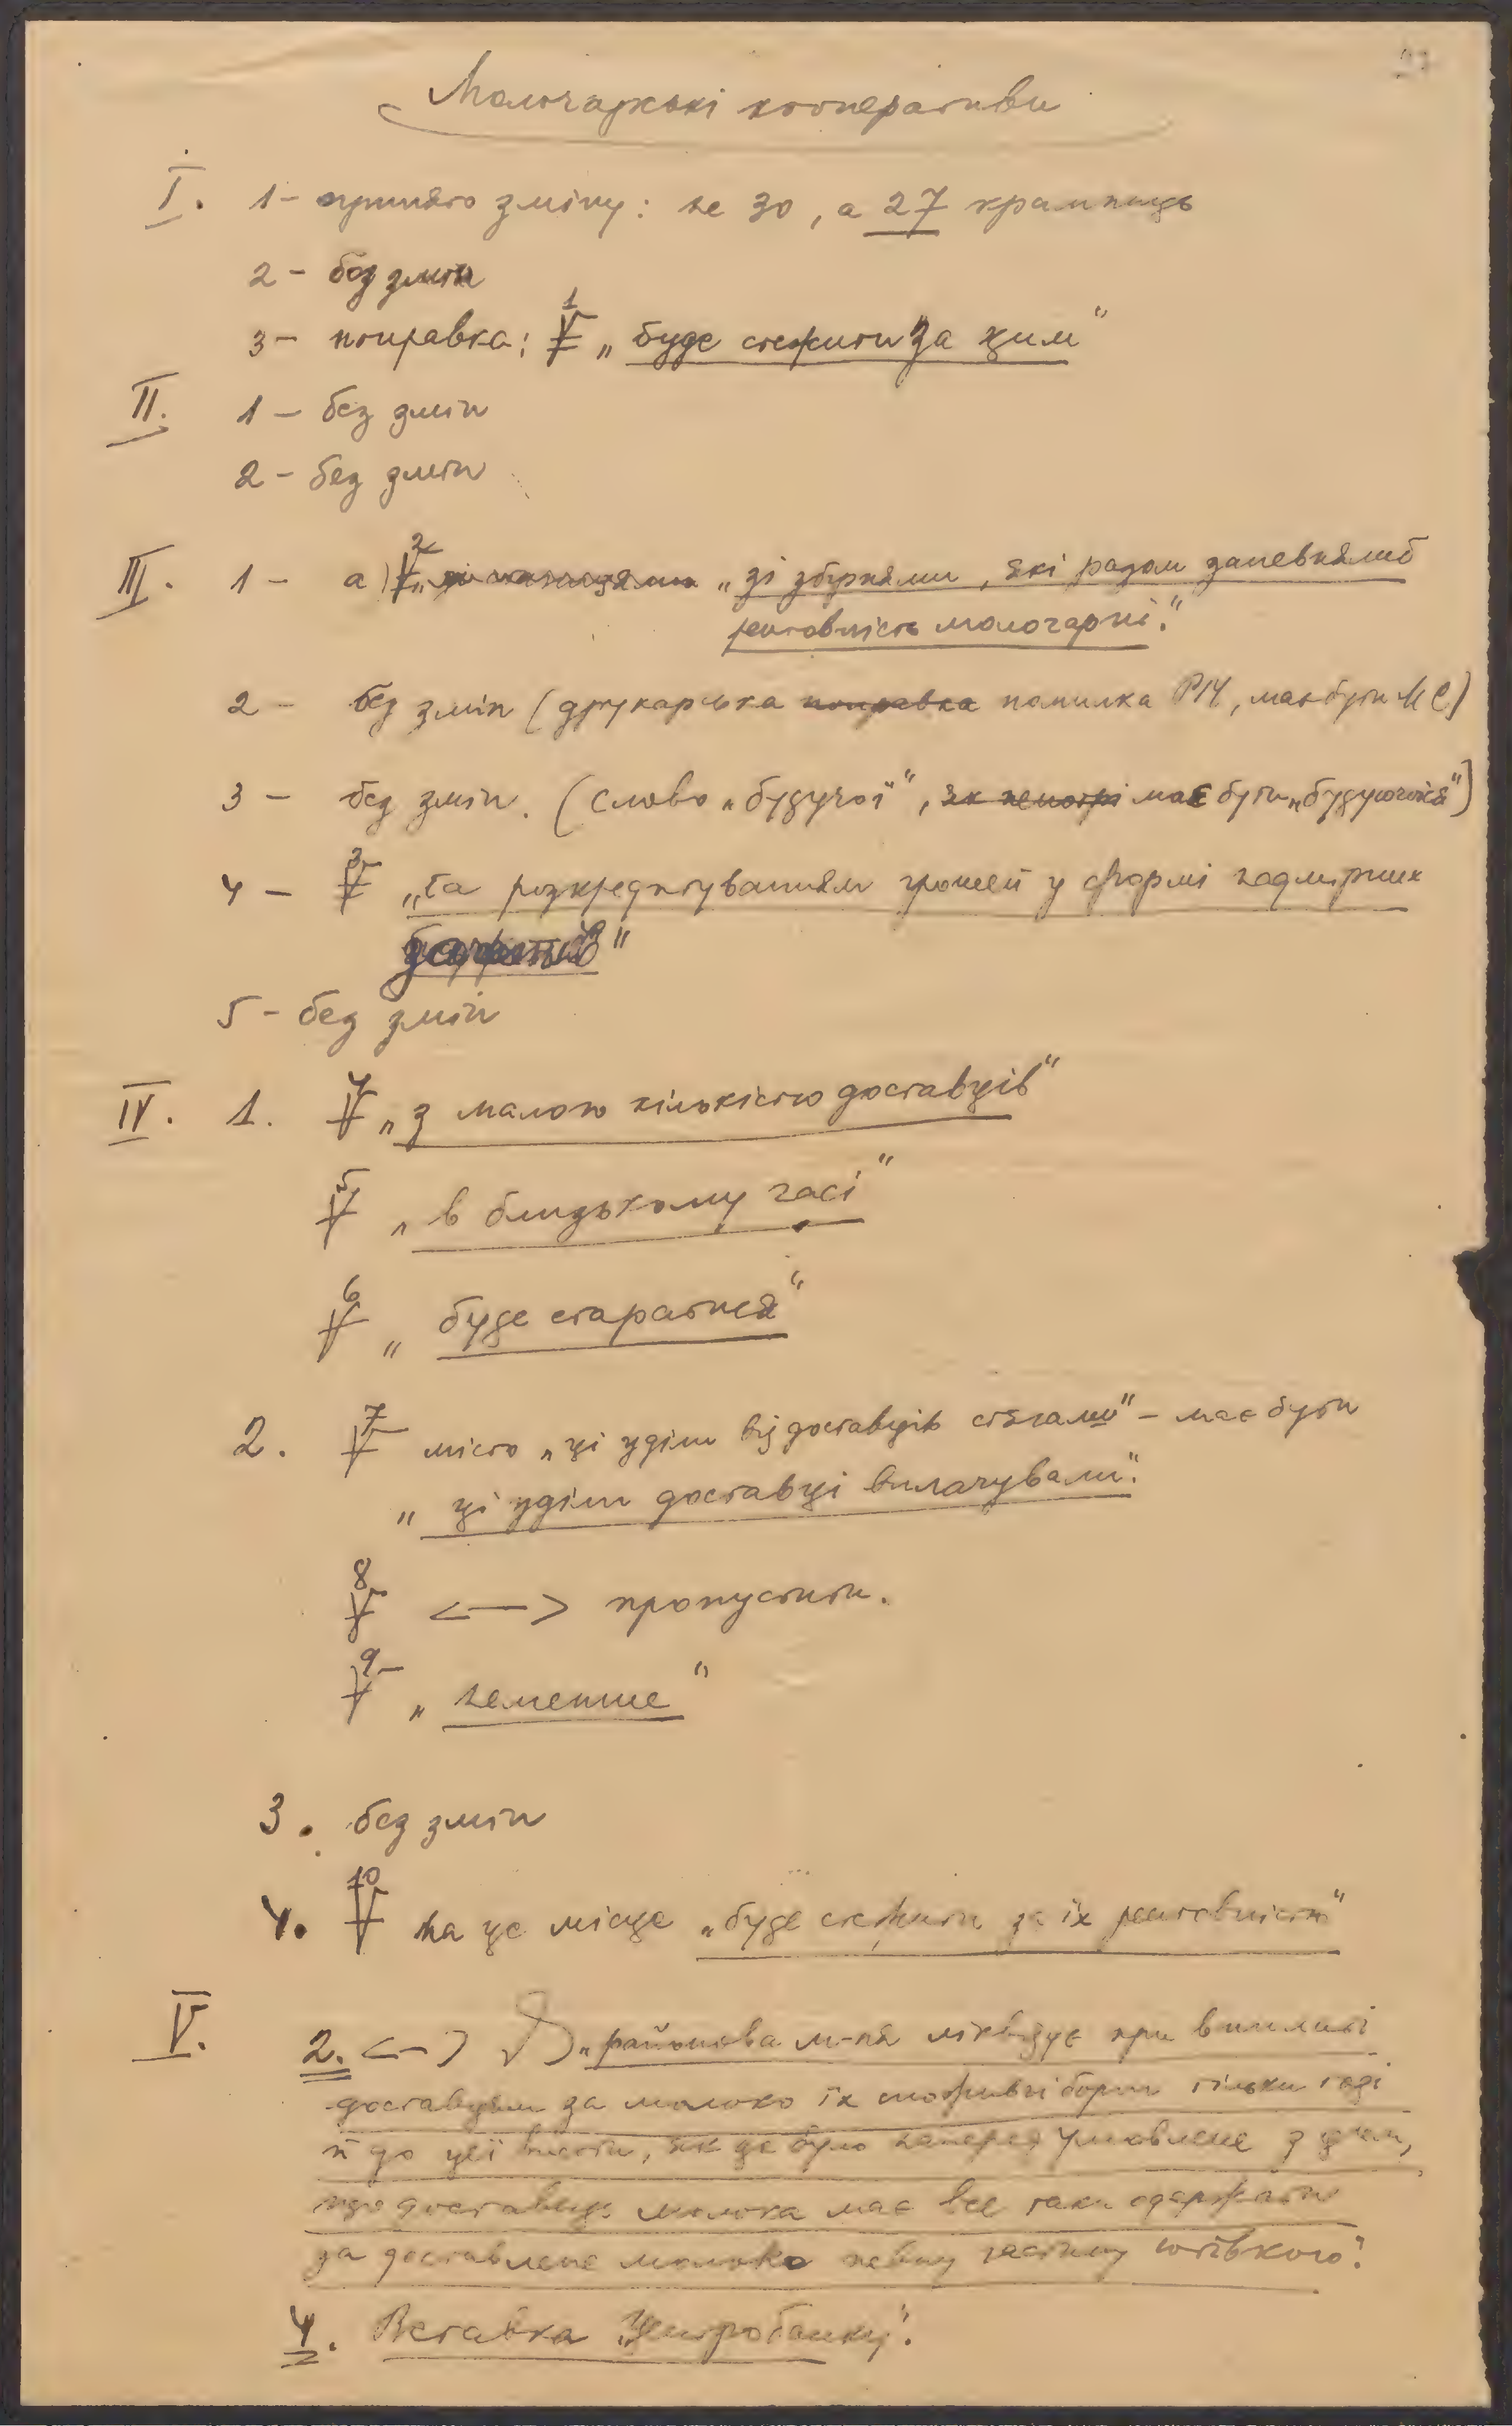 Молочарські кооперативи
I. 1 - принято зміну: не 30, а 27 крамниць
2 - без змін
3 - поправка: V 1 „буде стежити за цим“
II. 1 - без змін
2 - без змін
III. 1 - а) V 2 „зі збірнями, які разом запевняли б
рентовність молочарні.“
2 - без змін (друкарська поправка помилка РІЧ, має бути МС)
3 - без змін. (слово „будучої“, має бути „будуючоїся“)
4 - V 3 „та розкредитуванням грошей у формі надмірних
“
5 - без змін
IV. 1. V 4 „з малою кількістю доставців“
V 5 „в близькому часі“
V 6 „буде старатися“
2. V 7 місто „ці уділи від доставців стягали“ - має бути
„ці уділи доставці виплачували“.
V 8 <—> пропустити.
V 9 „неменше“
3. без змін
4. V 10 на це місце „буде стежити за їх рентовністю“
V. 2. <-> „районова м-ня ліквідує при виплаті
доставцям за молоко їх споживчі борги тільки тоді
й до цеї висоти, як це було наперед умовлене з цим,
що доставець молока має все таки одержати
за доставлене молоко певну частину готівкою“.
4. Вставка „Центробанку“.